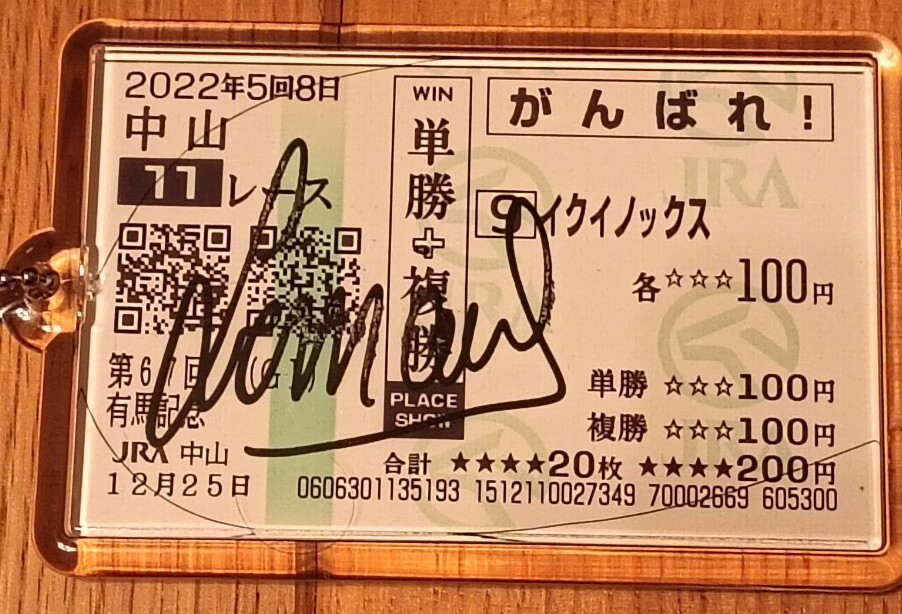 2022年5回8日
中山
11レース
第67回 (GI)
有馬記念
JRA 中山
12月25日
WIN
単勝+複勝
PLACE
SHOW
がんばれ！
9 イクイノックス
各☆☆☆100円
単勝 ☆☆☆100円
複勝 ☆☆☆100円
合計 ★★★★20枚 ★★★★200円
0606301135193 1512110027349 70002669 605300
JRA